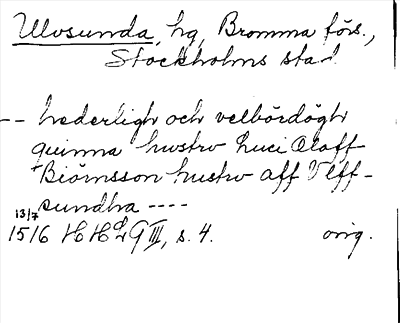 Ulvsunda, hg, Bromma förs.,
Stockholms stad
-- hederligh och velbördögh
quinna hwstrv Luci Oloff
Biörnsson hustrv aff Vlff-
sundha ----
13/7
1516 HH d. 9 III, s. 4. orig.